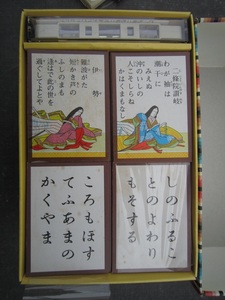 二條院讃岐
わが袖は
潮干に
みえぬ
沖のいしの
人こそしらね
かはくまもなし
伊勢
難波がた
短かき芦の
ふしのまも
逢はで此の世を
過ぐしてよとや
しのふるこ
とのよわり
もそする
ころもほす
てふあまの
かくやま